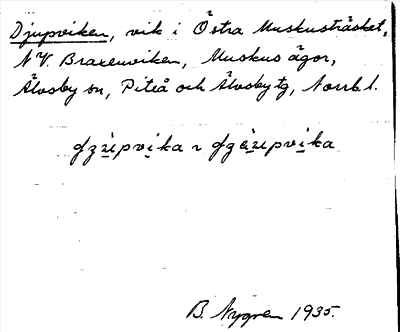 Djupviken, vik i Östra Muskusträsket,
N V. Braxenviken, Muskus ägor,
Älvsby sn, Piteå och Älvsby tg, Norrb. l.
B. Nygren 1935.